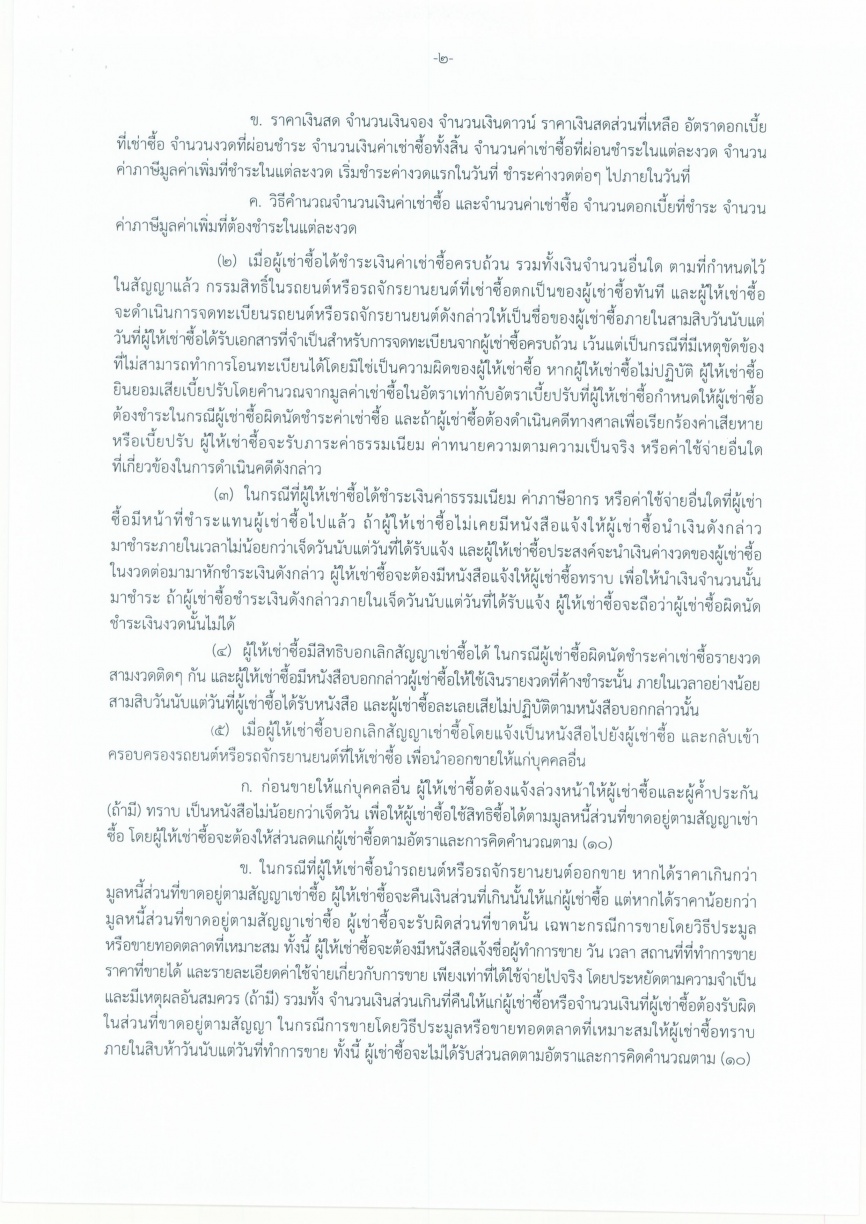 -๒-
ข. ราคาเงินสด จำนวนเงินจอง จำนวนเงินดาวน์ ราคาเงินสดส่วนที่เหลือ อัตราดอกเบี้ย
ที่เช่าซื้อ จำนวนงวดที่ผ่อนชำระ จำนวนเงินค่าเช่าซื้อทั้งสิ้น จำนวนค่าเช่าซื้อที่ผ่อนชำระในแต่ละงวด จำนวน
ค่าภาษีมูลค่าเพิ่มที่ชำระในแต่ละงวด เริ่มชำระค่างวดแรกในวันที่ ชำระค่างวดต่อๆ ไปภายในวันที่
ค. วิธีคำนวณจำนวนเงินค่าเช่าซื้อ และจำนวนค่าเช่าซื้อ จำนวนดอกเบี้ยที่ชำระ จำนวน
ค่าภาษีมูลค่าเพิ่มที่ต้องชำระในแต่ละงวด
(๒) เมื่อผู้เช่าซื้อได้ชำระเงินค่าเช่าซื้อครบถ้วน รวมทั้งเงินจำนวนอื่นใด ตามที่กำหนดไว้
ในสัญญาแล้ว กรรมสิทธิ์ในรถยนต์หรือรถจักรยานยนต์ที่เช่าซื้อตกเป็นของผู้เช่าซื้อทันที และผู้ให้เช่าซื้อ
จะดำเนินการจดทะเบียนรถยนต์หรือรถจักรยานยนต์ดังกล่าวให้เป็นชื่อของผู้เช่าซื้อภายในสามสิบวันนับแต่
วันที่ผู้ให้เช่าซื้อได้รับเอกสารที่จำเป็นสำหรับการจดทะเบียนจากผู้เช่าซื้อครบถ้วน เว้นแต่เป็นกรณีที่มีเหตุขัดข้อง
ที่ไม่สามารถทำการโอนทะเบียนได้โดยมิใช่เป็นความผิดของผู้ให้เช่าซื้อ หากผู้ให้เช่าซื้อไม่ปฏิบัติ ผู้ให้เช่าซื้อ
ยินยอมเสียเบี้ยปรับโดยคำนวณจากมูลค่าเช่าซื้อในอัตราเท่ากับอัตราเบี้ยปรับที่ผู้ให้เช่าซื้อกำหนดให้ผู้เช่าซื้อ
ต้องชำระในกรณีผู้เช่าซื้อผิดนัดชำระค่าเช่าซื้อ และถ้าผู้เช่าซื้อต้องดำเนินคดีทางศาลเพื่อเรียกร้องค่าเสียหาย
หรือเบี้ยปรับ ผู้ให้เช่าซื้อจะรับภาระค่าธรรมเนียม ค่าทนายความตามความเป็นจริง หรือค่าใช้จ่ายอื่นใด
ที่เกี่ยวข้องในการดำเนินคดีดังกล่าว
(๓) ในกรณีที่ผู้ให้เช่าซื้อได้ชำระเงินค่าธรรมเนียม ค่าภาษีอากร หรือค่าใช้จ่ายอื่นใดที่ผู้เช่า
ซื้อมีหน้าที่ชำระแทนผู้เช่าซื้อไปแล้ว ถ้าผู้ให้เช่าซื้อไม่เคยมีหนังสือแจ้งให้ผู้เช่าซื้อนำเงินดังกล่าว
มาชำระภายในเวลาไม่น้อยกว่าเจ็ดวันนับแต่วันที่ได้รับแจ้ง และผู้ให้เช่าซื้อประสงค์จะนำเงินค่างวดของผู้เช่าซื้อ
ในงวดต่อมามาหักชำระเงินดังกล่าว ผู้ให้เช่าซื้อจะต้องมีหนังสือแจ้งให้ผู้เช่าซื้อทราบ เพื่อให้นำเงินจำนวนนั้น
มาชำระ ถ้าผู้เช่าซื้อชำระเงินดังกล่าวภายในเจ็ดวันนับแต่วันที่ได้รับแจ้ง ผู้ให้เช่าซื้อจะถือว่าผู้เช่าซื้อผิดนัด
ชำระเงินงวดนั้นไม่ได้
(๔) ผู้ให้เช่าซื้อมีสิทธิบอกเลิกสัญญาเช่าซื้อได้ ในกรณีผู้เช่าซื้อผิดนัดชำระค่าเช่าซื้อรายงวด
สามงวดติดๆ กัน และผู้ให้เช่าซื้อมีหนังสือบอกกล่าวผู้เช่าซื้อให้ใช้เงินรายงวดที่ค้างชำระนั้น ภายในเวลาอย่างน้อย
สามสิบวันนับแต่วันที่ผู้เช่าซื้อได้รับหนังสือ และผู้เช่าซื้อละเลยเสียไม่ปฏิบัติตามหนังสือบอกกล่าวนั้น
(๕) เมื่อผู้ให้เช่าซื้อบอกเลิกสัญญาเช่าซื้อโดยแจ้งเป็นหนังสือไปยังผู้เช่าซื้อ และกลับเข้า
ครอบครองรถยนต์หรือรถจักรยานยนต์ที่ให้เช่าซื้อ เพื่อนำออกขายให้แก่บุคคลอื่น
ก. ก่อนขายให้แก่บุคคลอื่น ผู้ให้เช่าซื้อต้องแจ้งล่วงหน้าให้ผู้เช่าซื้อและผู้ค้ำประกัน
(ถ้ามี) ทราบ เป็นหนังสือไม่น้อยกว่าเจ็ดวัน เพื่อให้ผู้เช่าซื้อใช้สิทธิซื้อได้ตามมูลหนี้ส่วนที่ขาดอยู่ตามสัญญาเช่า
ซื้อ โดยผู้ให้เช่าซื้อจะต้องให้ส่วนลดแก่ผู้เช่าซื้อตามอัตราและการคิดคำนวณตาม (๑๐)
ข. ในกรณีที่ผู้ให้เช่าซื้อนำรถยนต์หรือรถจักรยานยนต์ออกขาย หากได้ราคาเกินกว่า
มูลหนี้ส่วนที่ขาดอยู่ตามสัญญาเช่าซื้อ ผู้ให้เช่าซื้อจะคืนเงินส่วนที่เกินนั้นให้แก่ผู้เช่าซื้อ แต่หากได้ราคาน้อยกว่า
มูลหนี้ส่วนที่ขาดอยู่ตามสัญญาเช่าซื้อ ผู้เช่าซื้อจะรับผิดส่วนที่ขาดนั้น เฉพาะกรณีการขายโดยวิธีประมูล
หรือขายทอดตลาดที่เหมาะสม ทั้งนี้ ผู้ให้เช่าซื้อจะต้องมีหนังสือแจ้งชื่อผู้ทำการขาย วัน เวลา สถานที่ที่ทำการขาย
ราคาที่ขายได้ และรายละเอียดค่าใช้จ่ายเกี่ยวกับการขาย เพียงเท่าที่ได้ใช้จ่ายไปจริง โดยประหยัดตามความจำเป็น
และมีเหตุผลอันสมควร (ถ้ามี) รวมทั้ง จำนวนเงินส่วนเกินที่คืนให้แก่ผู้เช่าซื้อหรือจำนวนเงินที่ผู้เช่าซื้อต้องรับผิด
ในส่วนที่ขาดอยู่ตามสัญญา ในกรณีการขายโดยวิธีประมูลหรือขายทอดตลาดที่เหมาะสมให้ผู้เช่าซื้อทราบ
ภายในสิบห้าวันนับแต่วันที่ทำการขาย ทั้งนี้ ผู้เช่าซื้อจะไม่ได้รับส่วนลดตามอัตราและการคิดคำนวณตาม (๑๐)